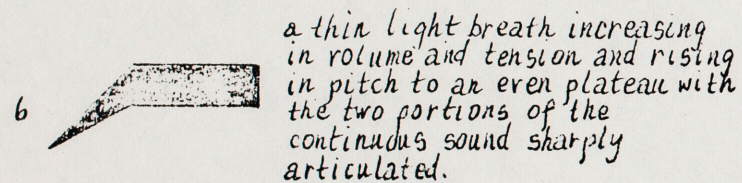 a thin light breath increasing
in volume and tension and rising
in pitch to an even plateau with
6 the two portions of the
continuous sound sharply
articulated.